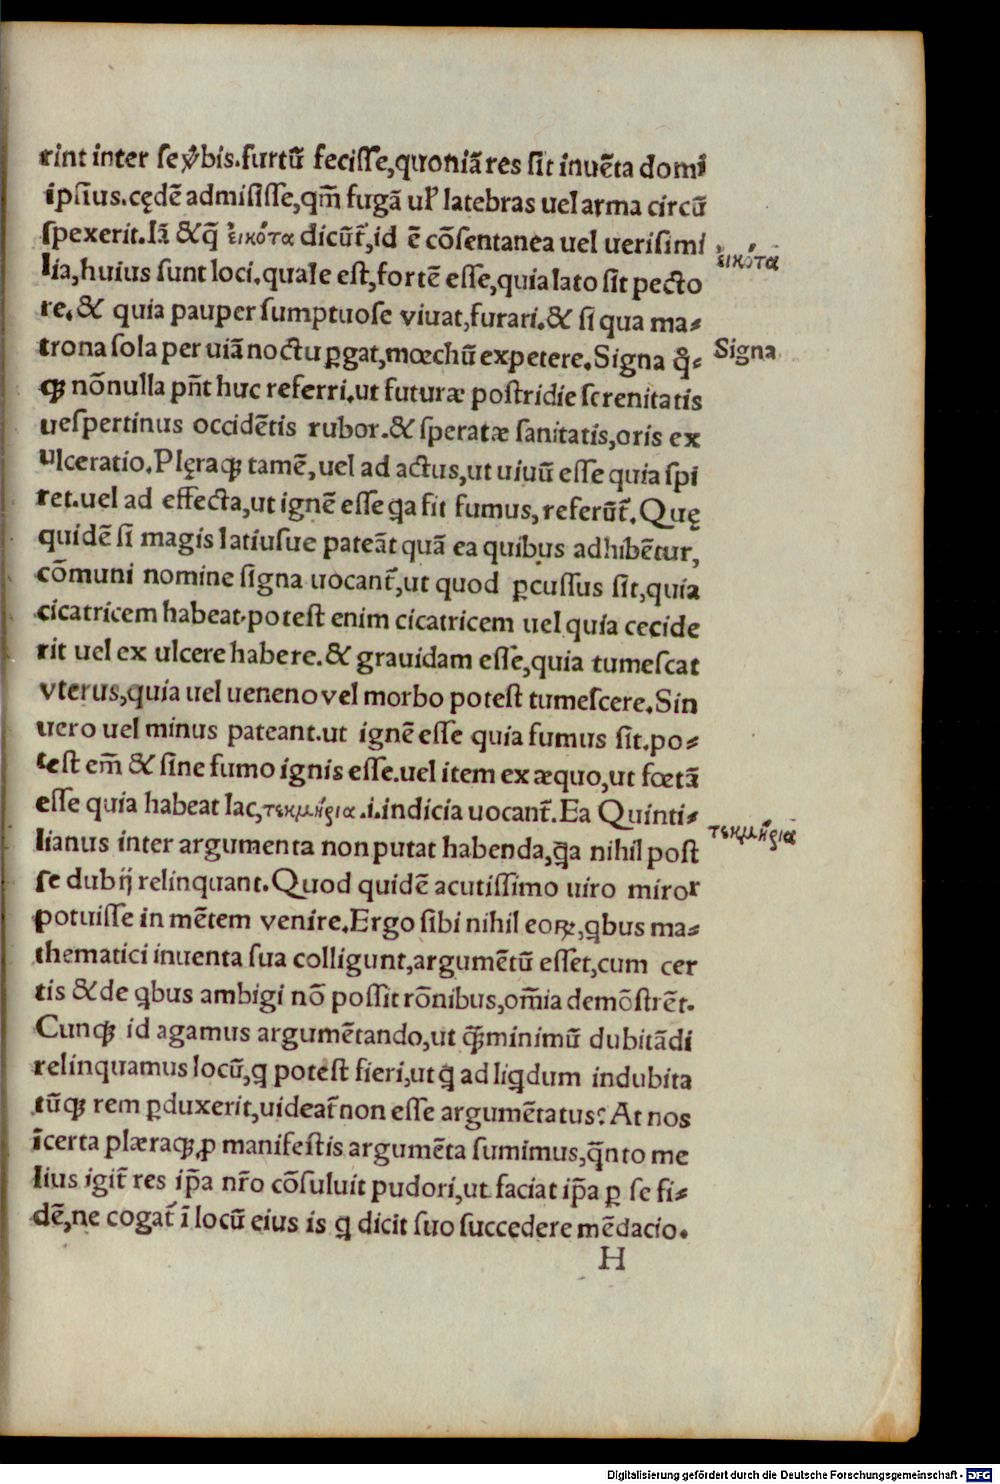 rint inter se v̓bis.furtū fecisse,quoniā res sit inuēta domi
ipsius.cędē admisisse,qm̄ fugā uľ latebras uel arma circū
spexerit.Iā &q̄ εἰκότα dicūt᷑,id ē cōsentanea uel uerisimi
εἰκότα
lia,huius sunt loci.quale est,fortē esse,quia lato sit pecto
re.& quia pauper sumptuose viuat,furari.& si qua ma-
trona sola per uiā noctu ꝑgat,mœchū expetere.Signa q̊-
Signa
qꝫ nōnulla pn̄t huc referri.ut futuræ postridie serenitatis
uespertinus occidētis rubor.& speratæ sanitatis,oris ex
vlceratio.Plęraqꝫ tamē,uel ad actus,ut uiuū esse quia spi
ret.uel ad effecta,ut ignē esse ꝗa fit fumus,referūt᷑.Quę
quidē si magis latiusue pateāt quā ea quibus adhibētur,
cōmuni nomine signa uocant᷑,ut quod ꝑcussus sit,quia
cicatricem habeat.potest enim cicatricem uel quia cecide
rit uel ex ulcere habere.& grauidam esse,quia tumescat
vterus,quia uel ueneno vel morbo potest tumescere.Sin
uero uel minus pateant.ut ignē esse quia fumus sit.po-
test em̄ & sine fumo ignis esse.uel item ex æquo,ut fœtā
esse quia habeat lac,τεκμήρια.i.indicia uocant᷑.Ea Quinti-
τεκμήρια
lianus inter argumenta non putat habenda,ꝗa nihil post
se dubij relinquant.Quod quidē acutissimo uiro miror
potuisse in mētem venire.Ergo sibi nihil eoꝝ,ꝗbus ma-
thematici inuenta sua colligunt,argumētū esset,cum cer
tis &de ꝗbus ambigi nō possit rōnibus,om̄ia demōstrēt.
Cunqꝫ id agamus argumētando,ut q̄ꝫminimū dubitādi
relinquamus locū,ꝗ potest fieri,ut ꝗ ad liꝗdum indubita
tūqꝫ rem ꝑduxerit,uideat᷑ non esse argumētatus? At nos
īcerta plæraqꝫ,ꝓ manifestis argumēta sumimus,q̄nto me
lius igit᷑ res ip̄a nr̄o cōsuluit pudori,ut faciat ip̄a ꝑ se fi-
dē,ne cogat᷑ ī locū eius is ꝗ dicit suo succedere mēdacio.
H
Digitalisierung gefördert durch die Deutsche Forschungsgemeinschaft - DFG